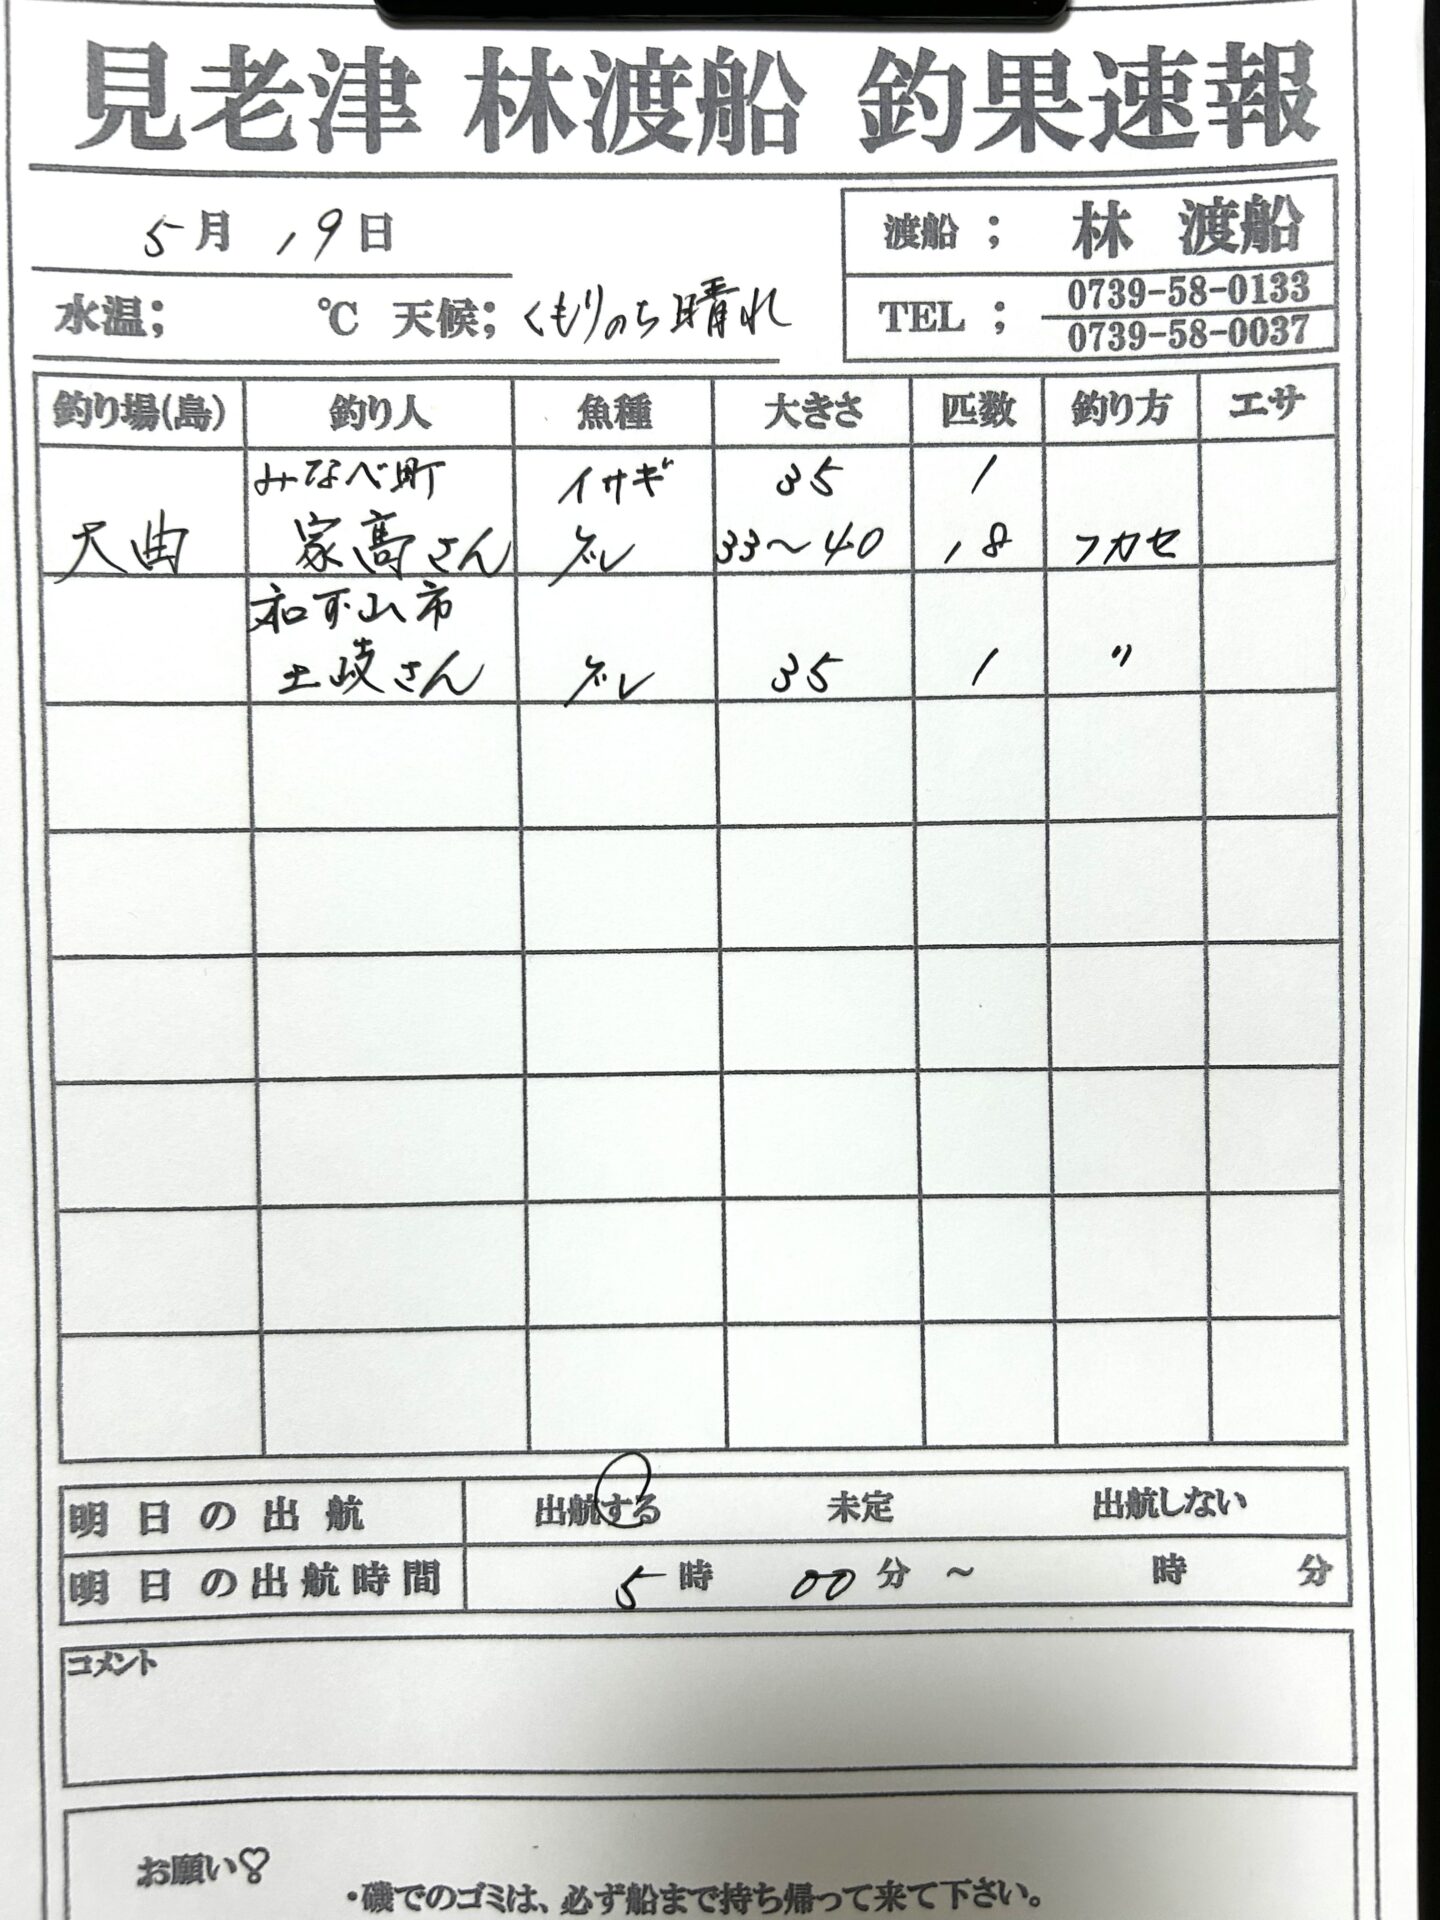 見老津 林渡船 釣果速報
5月 19日
渡船 ; 林 渡船
水温; ℃ 天候; くもりのち晴れ
TEL ; 0739-58-0133
0739-58-0037
釣り場(島) 釣り人 魚種 大きさ 匹数 釣り方 エサ
みなべ町 イサギ 35 1
大曲 家高さん グレ 33〜40 18 フカセ
和可山市
土岐さん グレ 35 1 〃
明日の出航 出航する 未定 出航しない
明日の出航時間 5時 00分 〜 時 分
コメント
お願い♡
・磯でのゴミは、必ず船まで持ち帰って来て下さい。